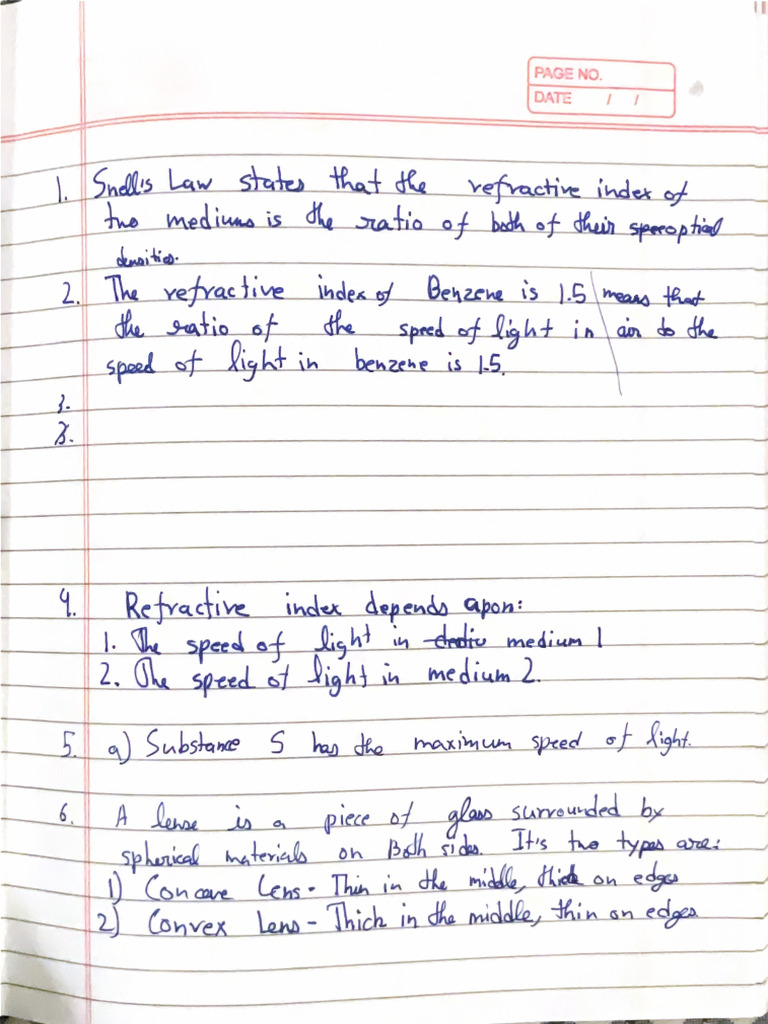 PAGE NO.
DATE / /
1. Snell's Law states that the refractive index of
two mediums is the ratio of both of their optical
densities.
2. The refractive index of Benzene is 1.5 means that
the ratio of the speed of light in air to the
speed of light in benzene is 1.5.
3.
4. Refractive index depends apon:
1. The speed of light in medium 1
2. The speed of light in medium 2.
5. a) Substance S has the maximum speed of light.
6. A lense is a piece of glass surrounded by
spherical materials on Both sides. It's two types are:
1) Concave Lens - Thin in the middle, thick on edges
2) Convex Lens - Thick in the middle, thin on edges